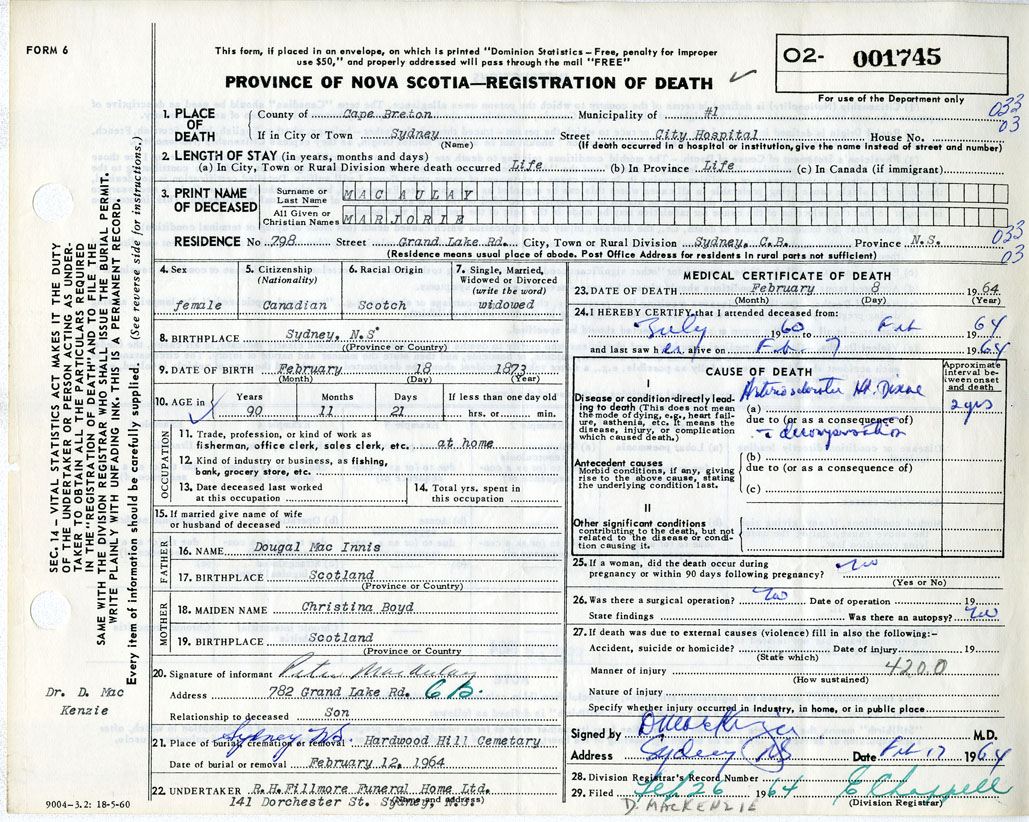 FORM 6
This form, if placed in an envelope, on which is printed "Dominion Statistics – Free, penalty for improper
use $50," and properly addressed will pass through the mail "FREE"
PROVINCE OF NOVA SCOTIA—REGISTRATION OF DEATH ✓
02- 001745
For use of the Department only
033
03
1. PLACE OF DEATH
County of Cape Breton Municipality of #1
If in City or Town Sydney Street City Hospital House No.
(Name) (If death occurred in a hospital or institution, give the name instead of street and number)
2. LENGTH OF STAY (in years, months and days)
(a) In City, Town or Rural Division where death occurred Life (b) In Province Life (c) In Canada (if immigrant)
3. PRINT NAME OF DECEASED
Surname or Last Name MAC AULAY
All Given or Christian Names MARJORIE
RESIDENCE No 798 Street Grand Lake Rd. City, Town or Rural Division Sydney, C.B. Province N.S.
(Residence means usual place of abode. Post Office Address for residents in rural parts not sufficient)
033
03
4. Sex
female
5. Citizenship
(Nationality)
Canadian
6. Racial Origin
Scotch
7. Single, Married, Widowed or Divorced
(write the word)
widowed
8. BIRTHPLACE Sydney, N.S.
(Province or Country)
9. DATE OF BIRTH February 18 1873
(Month) (Day) (Year)
10. AGE in
Years Months Days If less than one day old
90 11 21 hrs. or min.
OCCUPATION
11. Trade, profession, or kind of work as
fisherman, office clerk, sales clerk, etc. at home
12. Kind of industry or business, as fishing,
bank, grocery store, etc.
13. Date deceased last worked
at this occupation
14. Total yrs. spent in
this occupation
15. If married give name of wife
or husband of deceased
FATHER
16. NAME Dougal Mac Innis
17. BIRTHPLACE Scotland
(Province or Country)
MOTHER
18. MAIDEN NAME Christina Boyd
19. BIRTHPLACE Scotland
(Province or Country)
20. Signature of informant Peter MacAulay
Address 782 Grand Lake Rd. C B.
Relationship to deceased Son
Sydney N.S.
21. Place of burial, cremation or removal Hardwood Hill Cemetary
Date of burial or removal February 12, 1964
22. UNDERTAKER R.H. Fillmore Funeral Home Ltd.
141 Dorchester St. Sydney, N.S.
(Name and address)
MEDICAL CERTIFICATE OF DEATH
23. DATE OF DEATH February 8 1964
(Month) (Day) (Year)
24. I HEREBY CERTIFY that I attended deceased from:
July 1960 to Feb 64
and last saw her alive on Feb 7 1964
CAUSE OF DEATH
Approximate interval between onset and death
I
Disease or condition directly lead-
ing to death (This does not mean
the mode of dying, e.g., heart fail-
ure, asthenia, etc. It means the
disease, injury, or complication
which caused death.)
(a) Arteriosclerotic Ht. Disease 2 yrs
due to (or as a consequence of)
decompensation
Antecedent causes
Morbid conditions, if any, giving
rise to the above cause, stating
the underlying condition last.
(b)
due to (or as a consequence of)
(c)
II
Other significant conditions
contributing to the death, but not
related to the disease or condi-
tion causing it.
25. If a woman, did the death occur during
pregnancy or within 90 days following pregnancy? no
(Yes or No)
26. Was there a surgical operation? no Date of operation 19
State findings Was there an autopsy? no
27. If death was due to external causes (violence) fill in also the following:–
Accident, suicide or homicide? Date of injury 19
(State which)
Manner of injury 4200
(How sustained)
Nature of injury
Specify whether injury occurred in Industry, in home, or in public place
Signed by D MacKenzie M.D.
Address Sydney NS Date Feb 17 1964
28. Division Registrar's Record Number
29. Filed Feb 26 1964 E Chappell
D. MACKENZIE (Division Registrar)
SEC. 14 – VITAL STATISTICS ACT MAKES IT THE DUTY
OF THE UNDERTAKER OR PERSON ACTING AS UNDER-
TAKER TO OBTAIN ALL THE PARTICULARS REQUIRED
IN THE "REGISTRATION OF DEATH" AND TO FILE THE
SAME WITH THE DIVISION REGISTRAR WHO SHALL ISSUE THE BURIAL PERMIT.
WRITE PLAINLY WITH UNFADING INK. THIS IS A PERMANENT RECORD.
Every item of information should be carefully supplied. (See reverse side for instructions.)
Dr. D. Mac
Kenzie
9004–3.2: 18-5-60